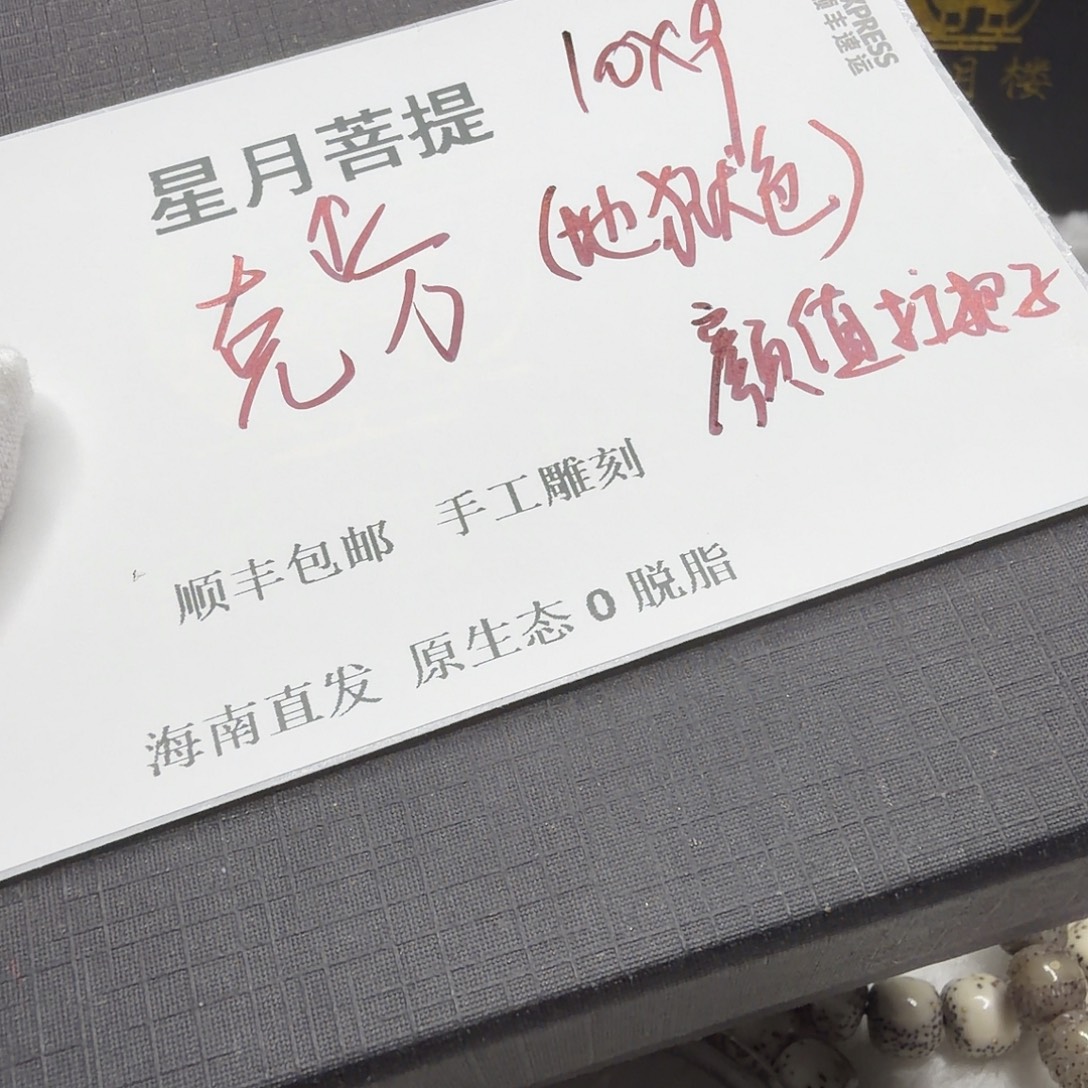 10X9
XPRESS
顺丰速运
楼
星月菩提
(地狱色)
克
颜值扛把子
顺丰包邮 手工雕刻
海南直发 原生态0脱脂